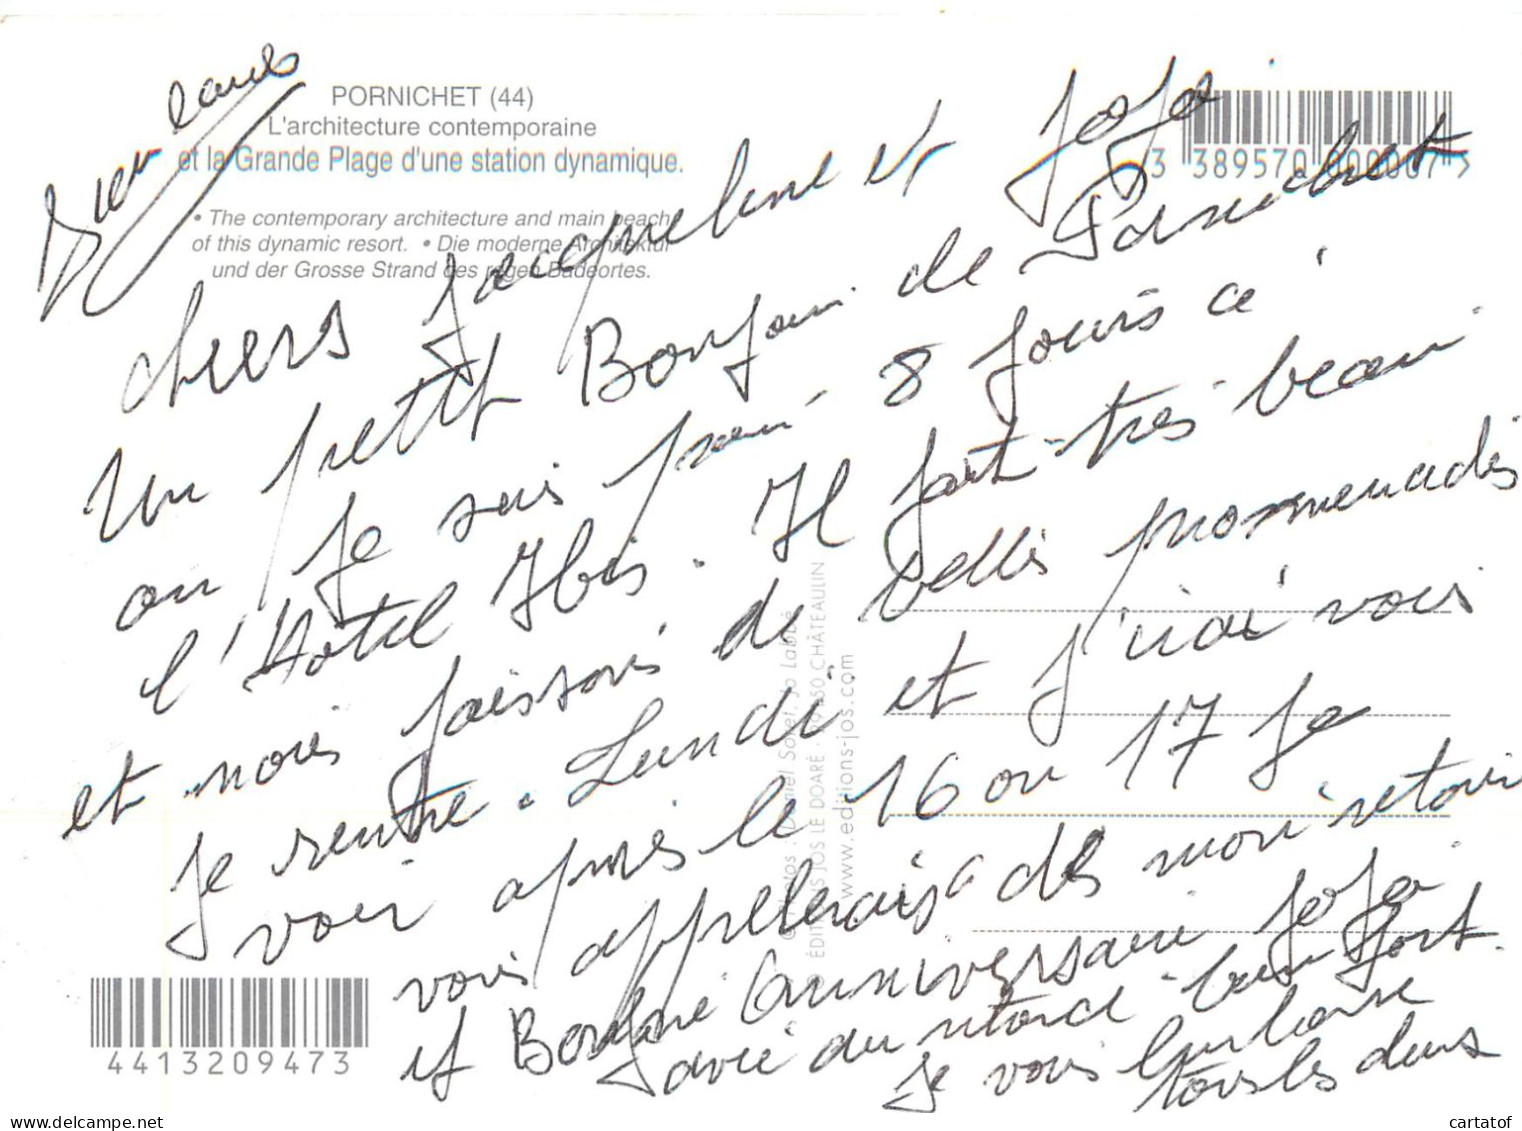 PORNICHET (44)
L'architecture contemporaine
et la Grande Plage d'une station dynamique.
• The contemporary architecture and main beach
of this dynamic resort. • Die moderne Architektur
und der Grosse Strand des regen Badeortes.
3 389570 000007 >
chers Jacqueline et JoJo
Un petit Bonjour de Pornichet
ou je suis pour 8 jours a
l'Hotel Ibis. Il fait très beau
et nous faisons de belles promenades
Je rentre Lundi et j'irai vous
voir après le 16 ou 17 Je
vous appelerais dès mon retour
et Bonne anniversaire JoJo
avec du retard bien fort.
Je vous embrasse
tous les deux
Photos : Daniel Sorel, Jo Labbé
© ÉDITIONS JOS LE DOARÉ - 29150 CHÂTEAULIN
www.editions-jos.com
4413209473
cartatof